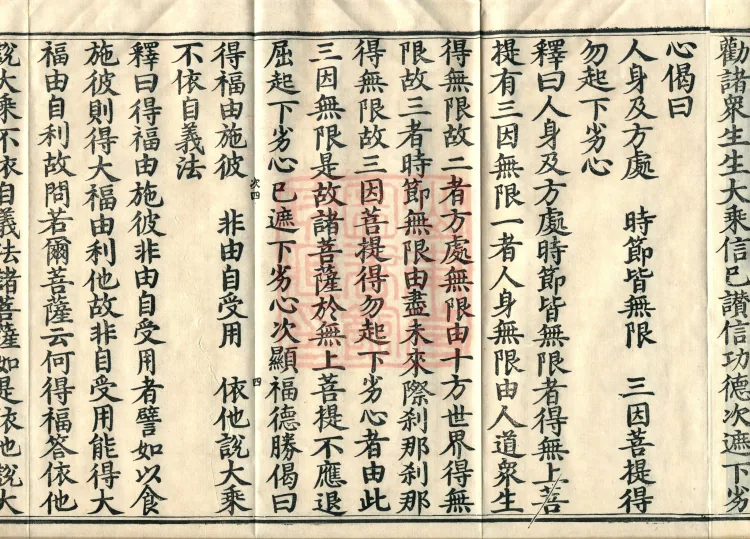 勸諸衆生生大乘信已讃信功德次遮下劣
心偈曰
人身及方處　時節皆無限　三因菩提得
勿起下劣心
釋曰人身及方處時節皆無限者得無上菩
提有三因無限一者人身無限由人道衆生
得無限故二者方處無限由十方世界得無
限故三者時節無限由盡未來際刹那刹那
得無限故三因菩提得勿起下劣心者由此
三因無限是故諸菩薩於無上菩提不應退
屈起下劣心已遮下劣心次顯福德勝偈曰
次四
四
得福由施彼　非由自受用　依他說大乘
不依自義法
釋曰得福由施彼非由自受用者譬如以食
施彼則得大福由利他故非自受用能得大
福由自利故問若爾菩薩云何得福答依他
說大乘不依自義法諸菩薩如是依他說大